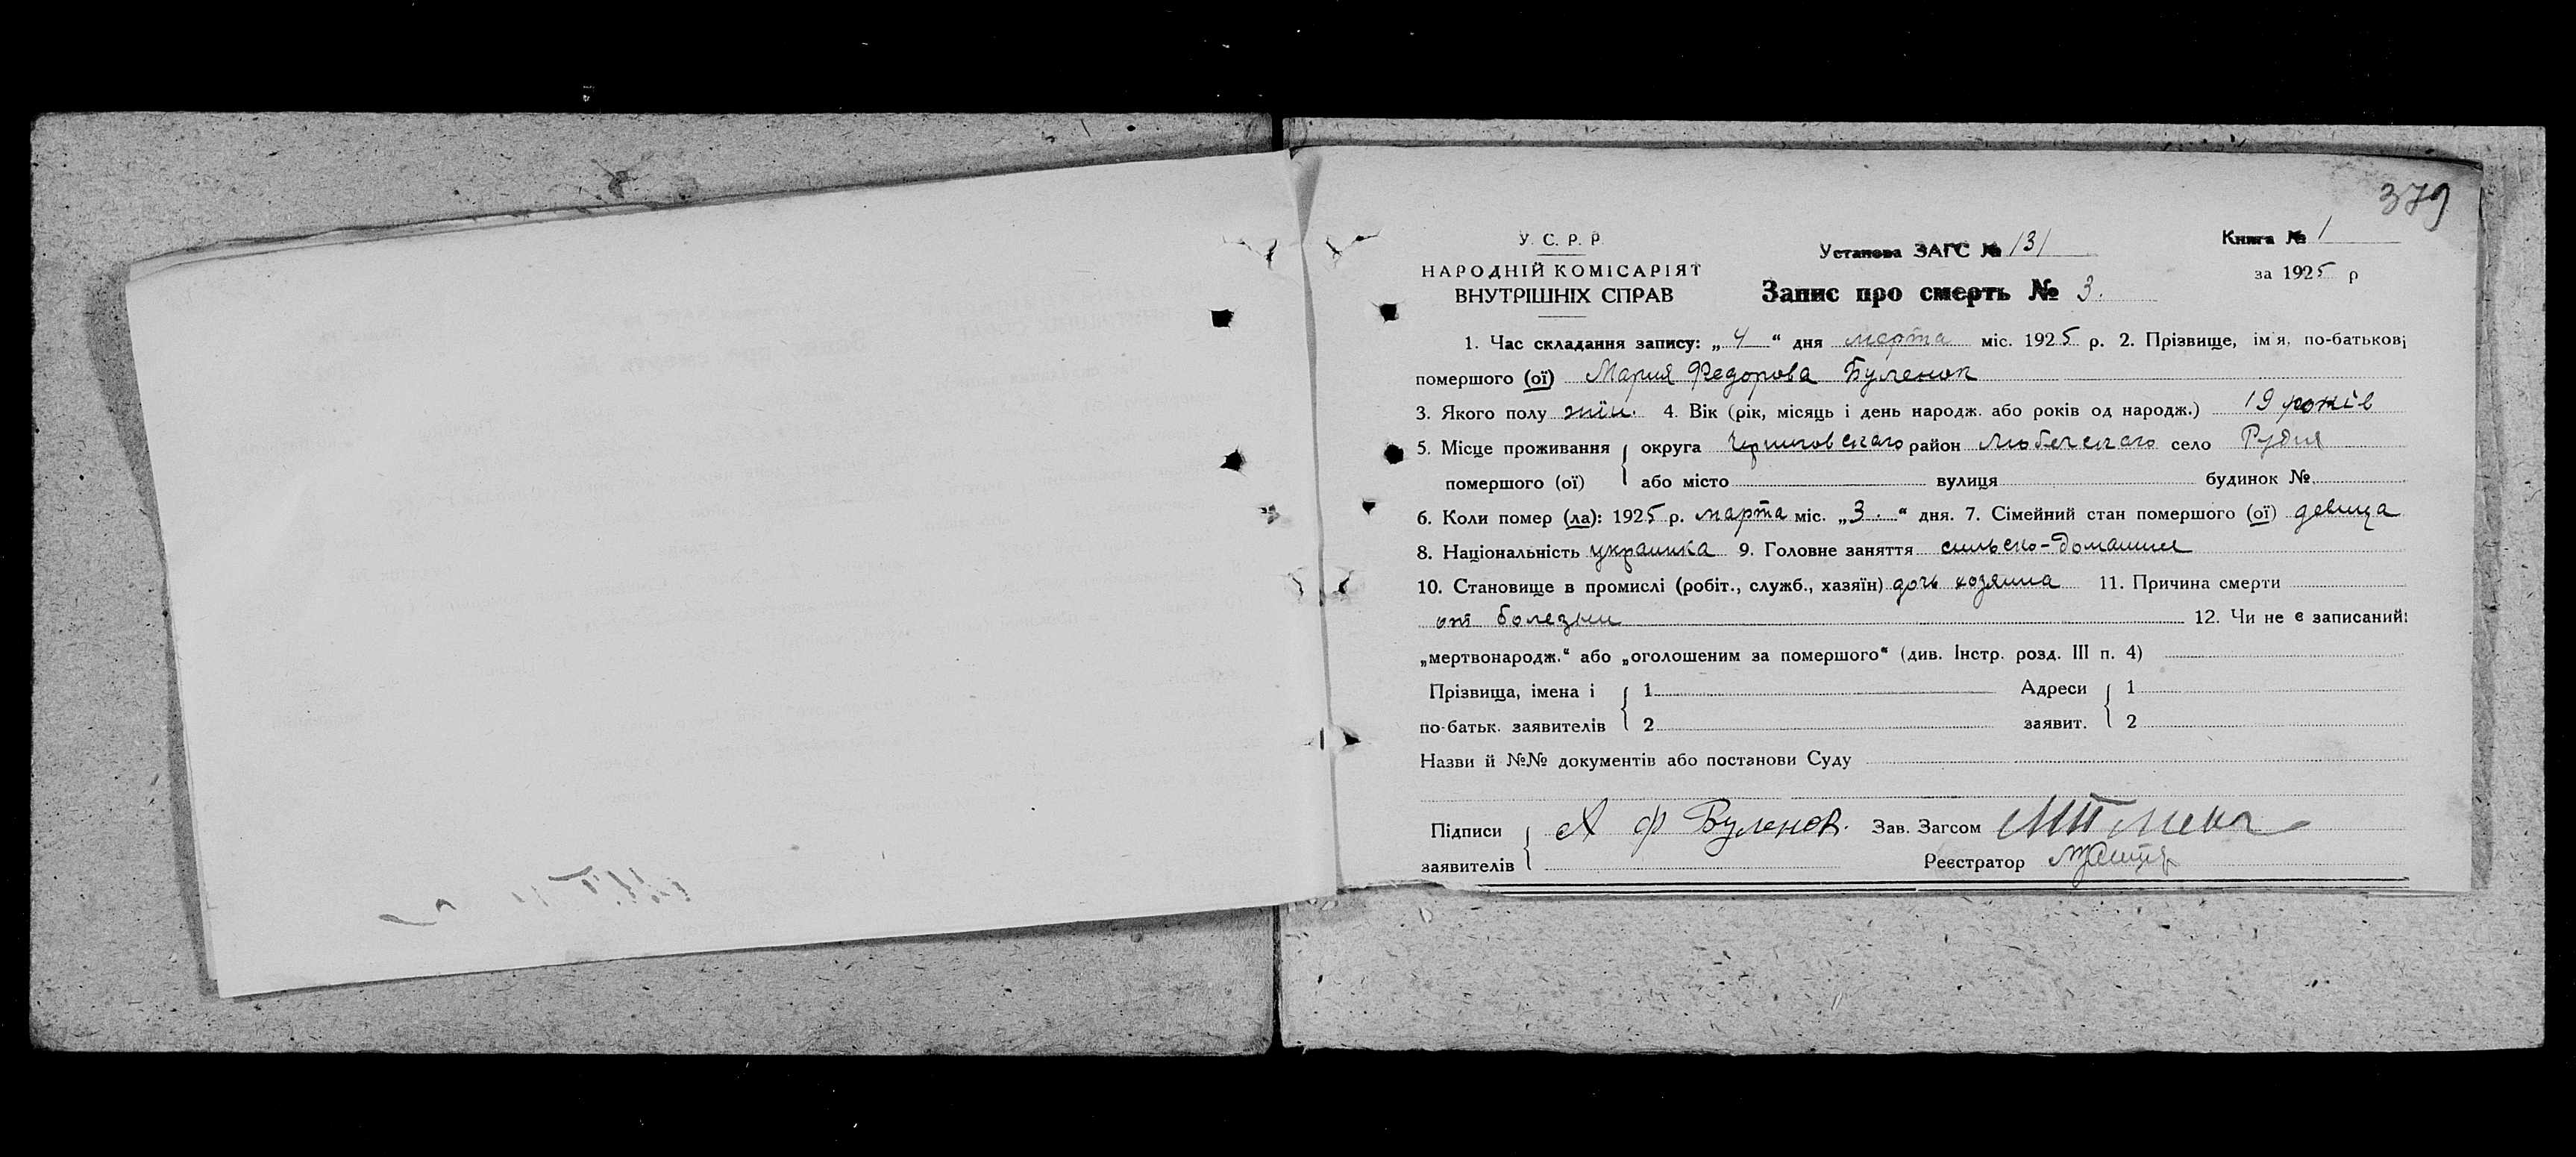 379
У. С. Р. Р.
НАРОДНІЙ КОМІСАРІЯТ
ВНУТРІШНІХ СПРАВ
Установа ЗАГС № 131
Книга № 1
за 1925 р
Запис про смерть № 3.
1. Час складання запису: „ 4 “ дня марта міс. 1925 р. 2. Прізвище, ім'я, по-батькові
помершого (ої) Мария Федорова Буленок
3. Якого полу жін. 4. Вік (рік, місяць і день народж. або років од народж.) 19 років
5. Місце проживання помершого (ої) { округа Черниговскаго район Любечскаго село Рудня
або місто вулиця будинок №
6. Коли помер (ла): 1925 р. марта міс. „3.“ дня. 7. Сімейний стан помершого (ої) девица
8. Національність украинка 9. Головне заняття сильско-домашня
10. Становище в промислі (робіт., служб., хазяїн) дочь хозяина 11. Причина смерти
от болезни 12. Чи не є записаний:
„мертвонародж.“ або „оголошеним за помершого“ (див. Інстр. розд. III п. 4)
Прізвища, імена і по-батьк. заявителів { 1 Адреси заявит. { 1
2 2
Назви й №№ документів або постанови Суду
Підписи заявителів { А Ф Буленок. Зав. Загсом
Реєстратор